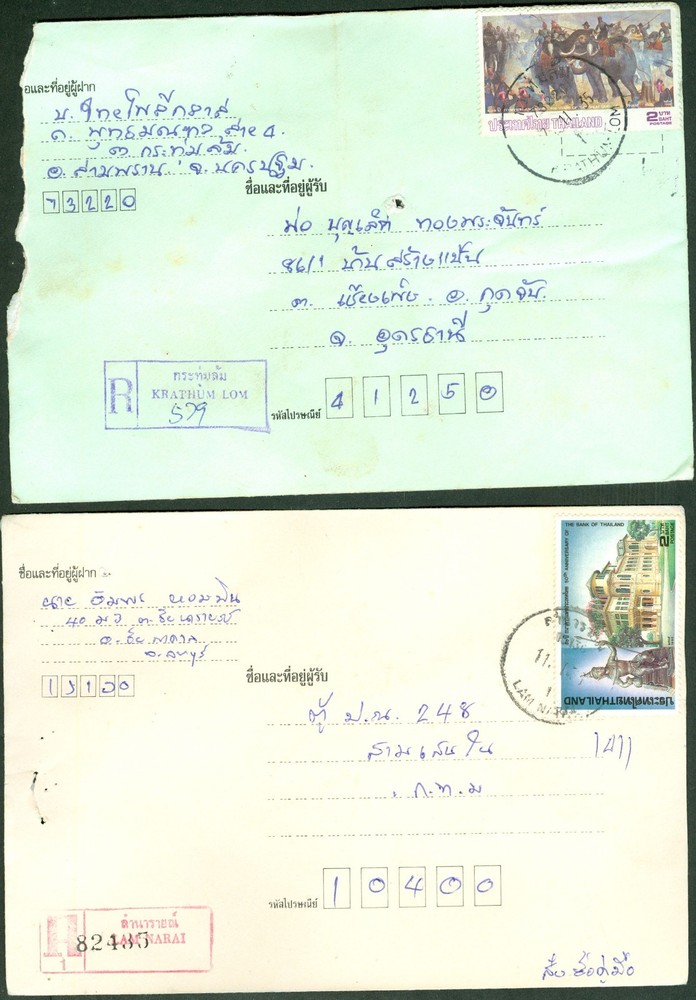 อและที่อยู่ผู้ฝาก
บ. ไทยโพลีคลาส
ถ. พุทธมณฑล สาย 4
ต. กระทุ่มล้ม
อ. สามพราน จ. นครปฐม.
73220
ประเทศไทย THAILAND
2 บาท
BAHT
POSTAGE
11 35
KRATHUM LOM
ชื่อและที่อยู่ผู้รับ
พ่อ บุญเลิศ ทองพระจันทร์
86/1 บ้านสร้างแป้น
ต. เชียงเพ็ง. อ. กุดจับ
จ. อุดรธานี
R
กระทุ่มล้ม
KRATHUM LOM
579
รหัสไปรษณีย์ 41250
ชื่อและที่อยู่ผู้ฝาก
นาย
40 ม.
อ. ชัยบาดาล
จ. ลพบุรี
15130
50TH ANNIVERSARY OF THE BANK OF THAILAND
2 บาท
BAHT
POSTAGE
ประเทศไทย THAILAND
11.
1
LAM NARAI
ชื่อและที่อยู่ผู้รับ
ตู้ ป.ณ. 248
สามเสนใน
ก.ท.ม
รหัสไปรษณีย์ 10400
R
1
ลำนารายณ์
LAM NARAI
82435
สั่งซื้อคู่มือ